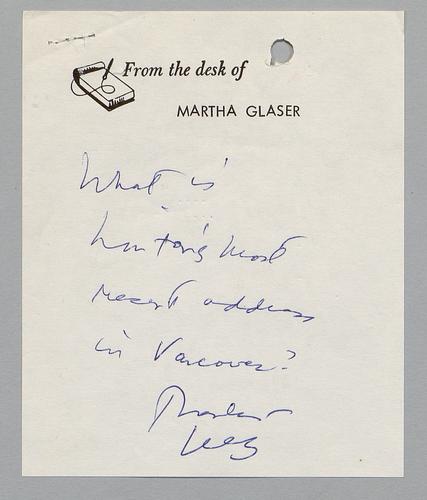 From the desk of
MARTHA GLASER
What is
most
recent address
in Vancover?